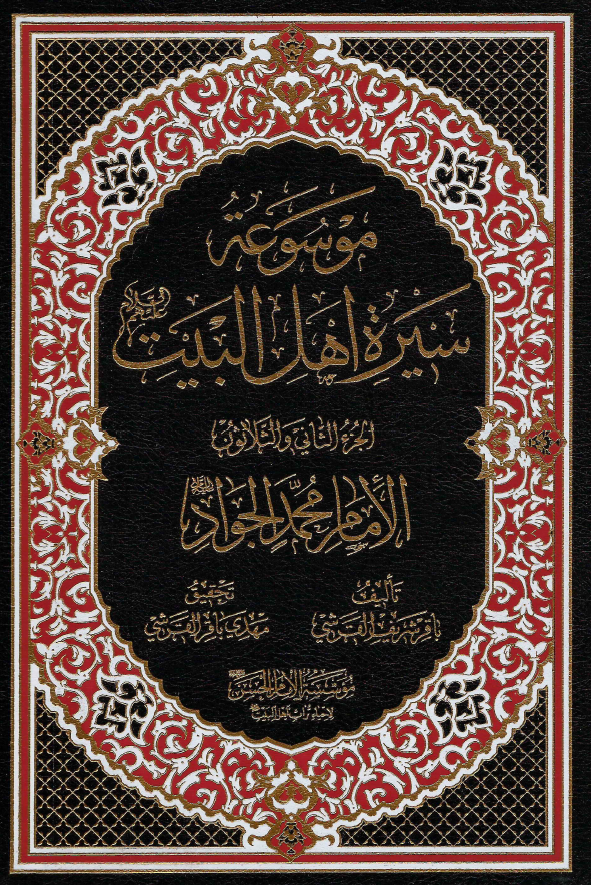 موسوعة
سيرة أهل البيت عليهم السلام
الجزء الثاني والثلاثون
الإمام محمد الجواد
تأليف
باقر شريف القرشي
تحقيق
مهدي باقر القرشي
مؤسسة الإمام الحسن
لإحياء تراث أهل البيت